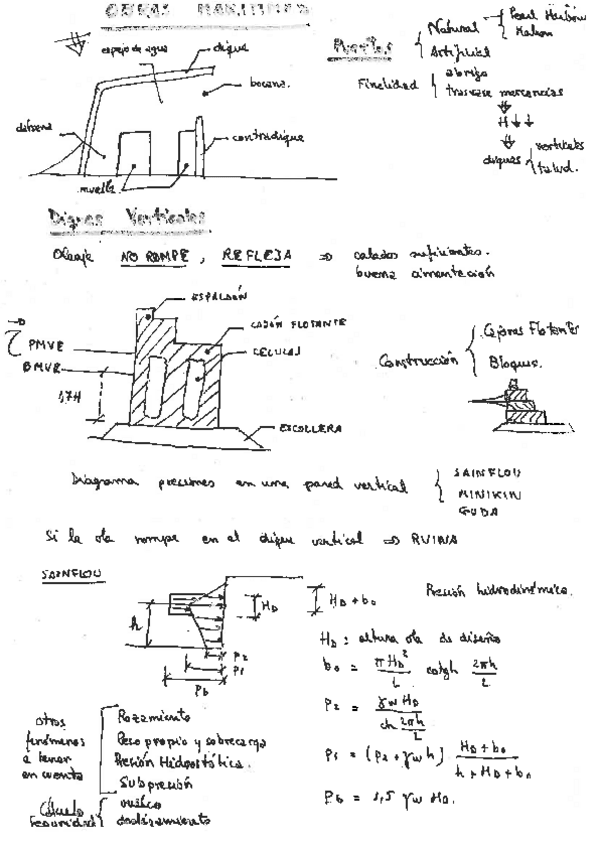 OBRAS MARITIMAS
espejo de agua
dique
bocana.
dársena
contradique
muelle
Puertos
Natural
Pearl Harbour
Mahon
Artificial
Finalidad
abrigo
trasvase mercancías
H↓↓
diques
verticales
talud.
Diques Verticales
Oleaje NO ROMPE, REFLEJA => calados suficientes.
buena cimentación
ESPALDÓN
CAJÓN FLOTANTE
CELULAS
PMVE
BMVE
1,7H
ESCOLLERA
Construcción
Cajones Flotantes
Bloques.
Diagrama presiones en una pared vertical
SAINFLOU
MINIKIN
GODA
Si la ola rompe en el dique vertical => RUINA
SAINFLOU
h
H_D
H_D + b_0
P_2
P_1
P_b
Presión hidrodinámica.
H_D: altura ola de diseño
b_0 = πH_D² / L cotgh 2πh / L
P_2 = γ_w H_D / ch 2πh / L
P_1 = (P_2 + γ_w h) H_D + b_0 / h + H_D + b_0
P_b = 1,5 γ_w H_D.
otros fenómenos a tener en cuenta
Rozamiento
Peso propio y sobrecarga
Presión Hidrostática.
Subpresión
Cálculo Seguridad
vuelco
deslizamiento